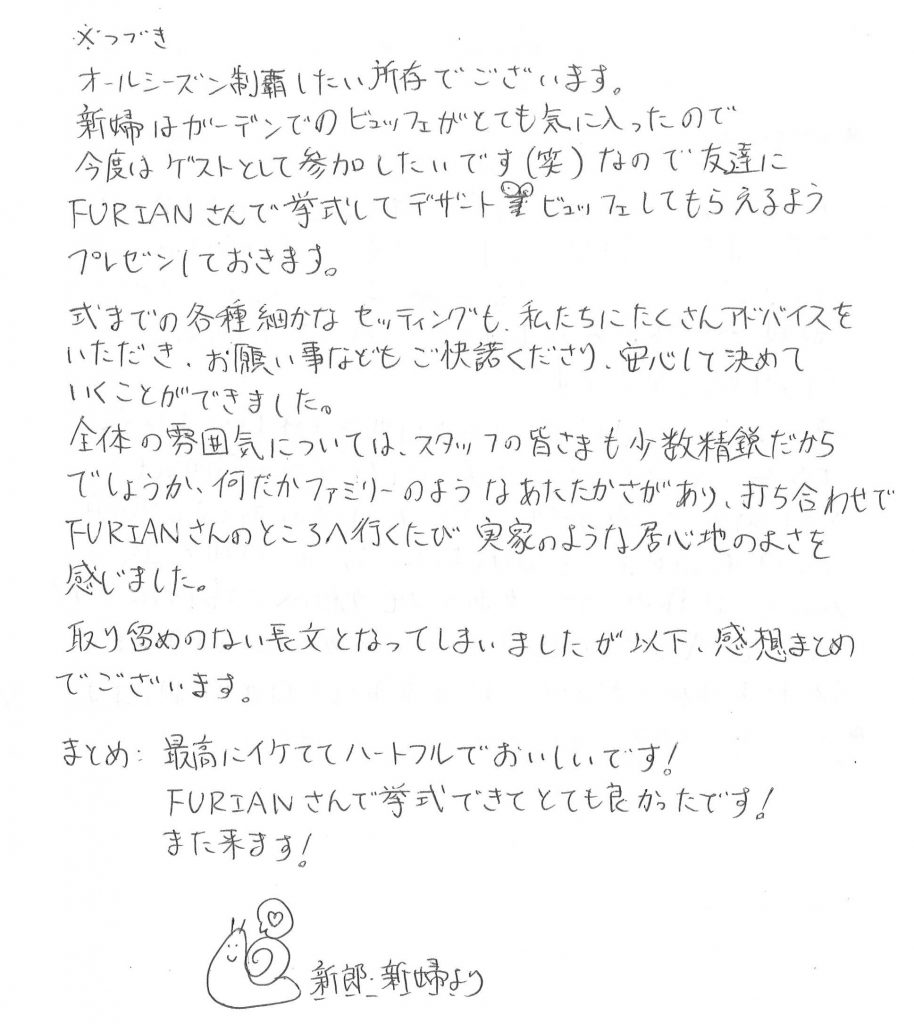 ※つづき
オールシーズン制覇したい所存でございます。
新婦はガーデンでのビュッフェがとても気に入ったので
今度はゲストとして参加したいです(笑)なので友達に
FURIANさんで挙式してデザートビュッフェしてもらえるよう
プレゼンしておきます。
式までの各種細かなセッティングも、私たちにたくさんアドバイスを
いただき、お願い事などもご快諾くださり、安心して決めて
いくことができました。
全体の雰囲気については、スタッフの皆さまも少数精鋭だから
でしょうか、何だかファミリーのようなあたたかさがあり、打ち合わせで
FURIANさんのところへ行くたび実家のような居心地のよさを
感じました。
取り留めのない長文となってしまいましたが以下、感想まとめ
でございます。
まとめ:最高にイケててハートフルでおいしいです!
FURIANさんで挙式できてとても良かったです!
また来ます!
新郎・新婦より